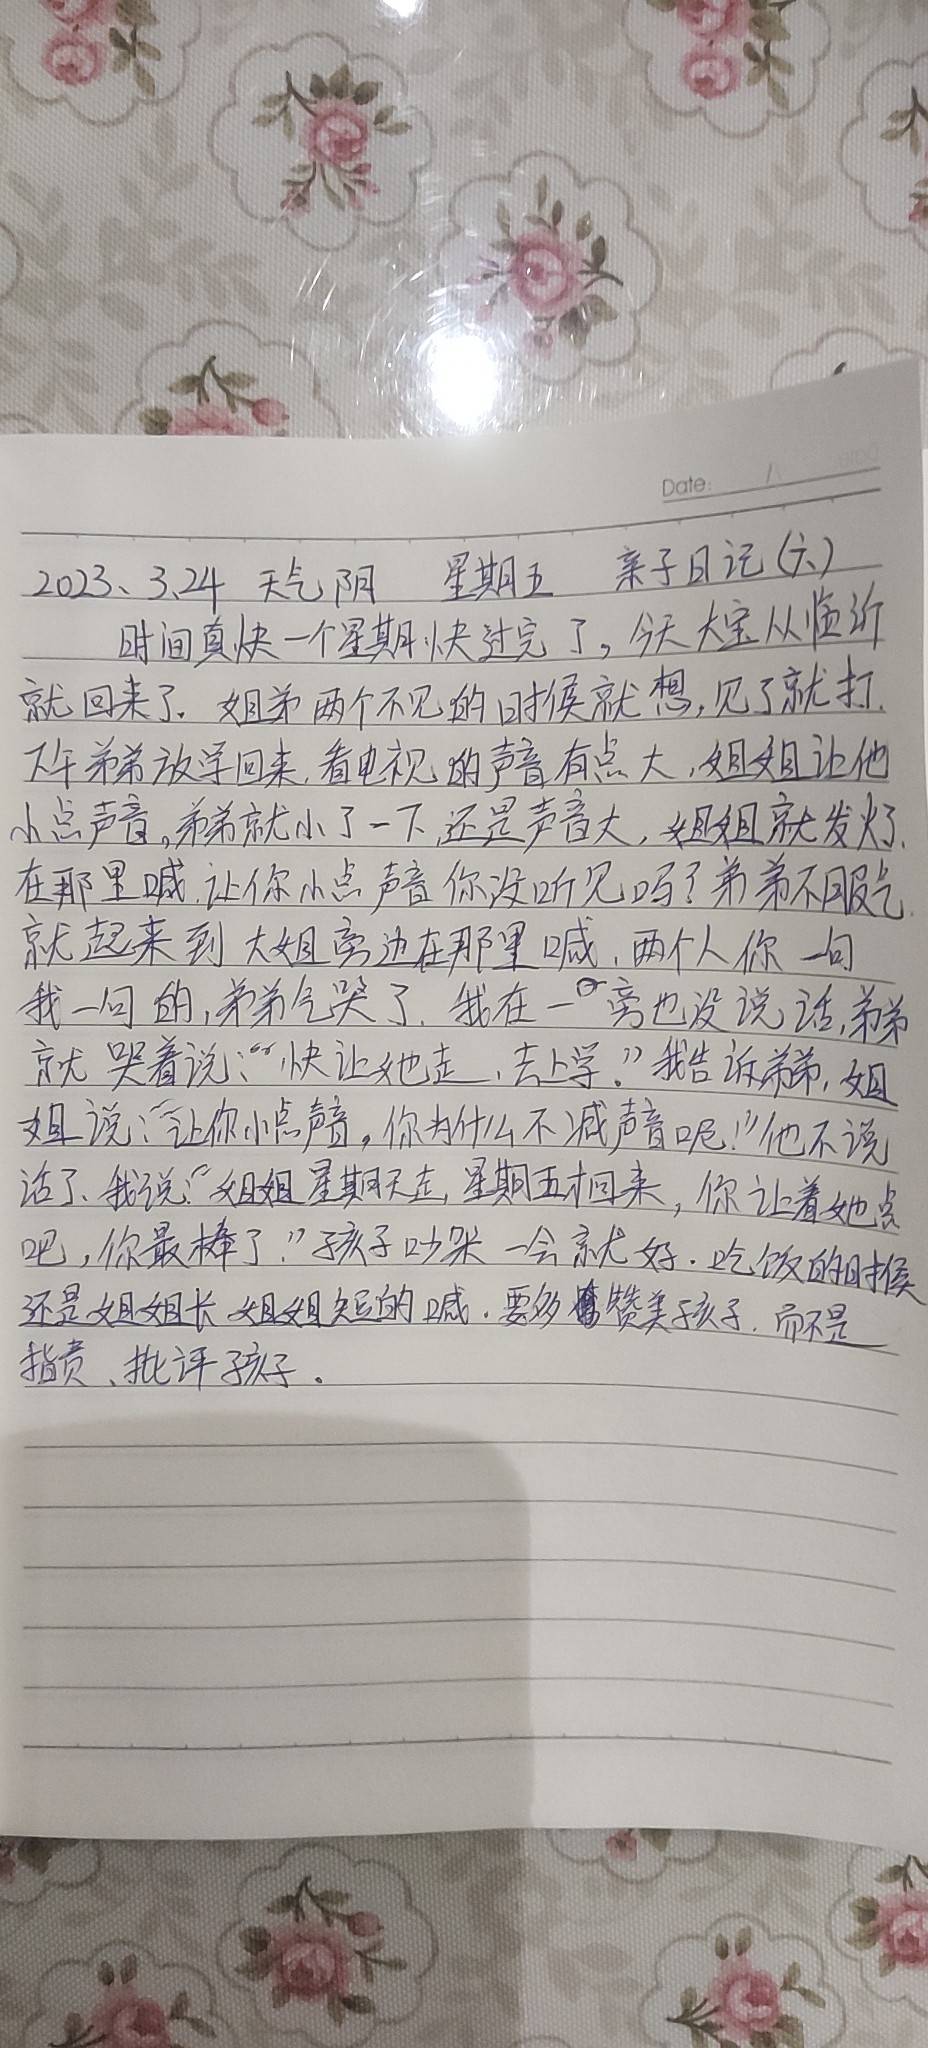 Date: /
2023、3.24 天气阴 星期五 亲子日记(六)
时间真快一个星期快过完了。今天大宝从临沂
就回来了. 姐弟两个不见的时候就想,见了就打.
下午弟弟放学回来,看电视的声音有点大,姐姐让他
小点声音。弟弟就小了一下,还是声音大,姐姐就发火了.
在那里喊,让你小点声音你没听见吗?弟弟不服气.
就起来到大姐旁边在那里喊,两个人你一句
我一句的,弟弟气哭了. 我在一旁也没说话,弟弟
就哭着说:“快让她走,去上学。”我告诉弟弟,姐
姐说:“让你小点声音,你为什么不减声音呢!”他不说
话了、我说:“姐姐星期天走,星期五才回来,你让着她点
吧,你最棒了!”孩子吵架一会就好.吃饭的时候
还是姐姐长姐姐短的喊.要多赞美孩子.而不是
指责、批评孩子.